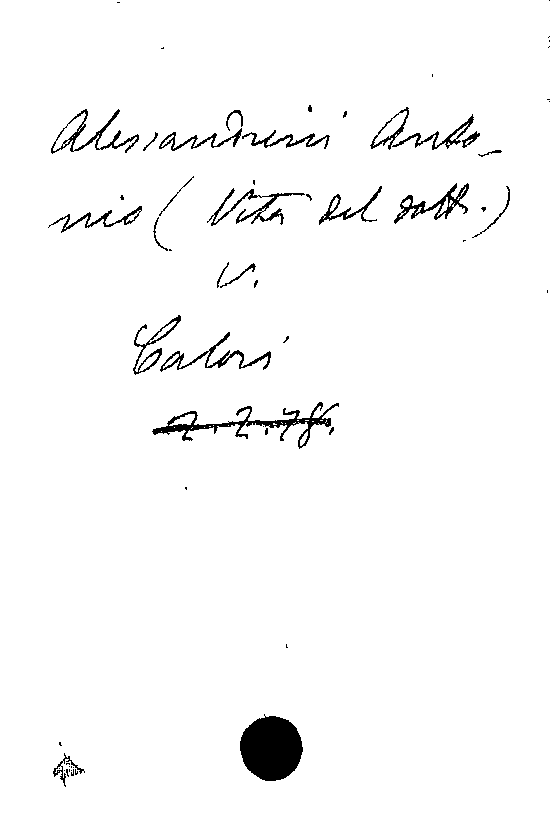 Alessandrini Anto-
nio (Vita del dott.)
v.
Calori